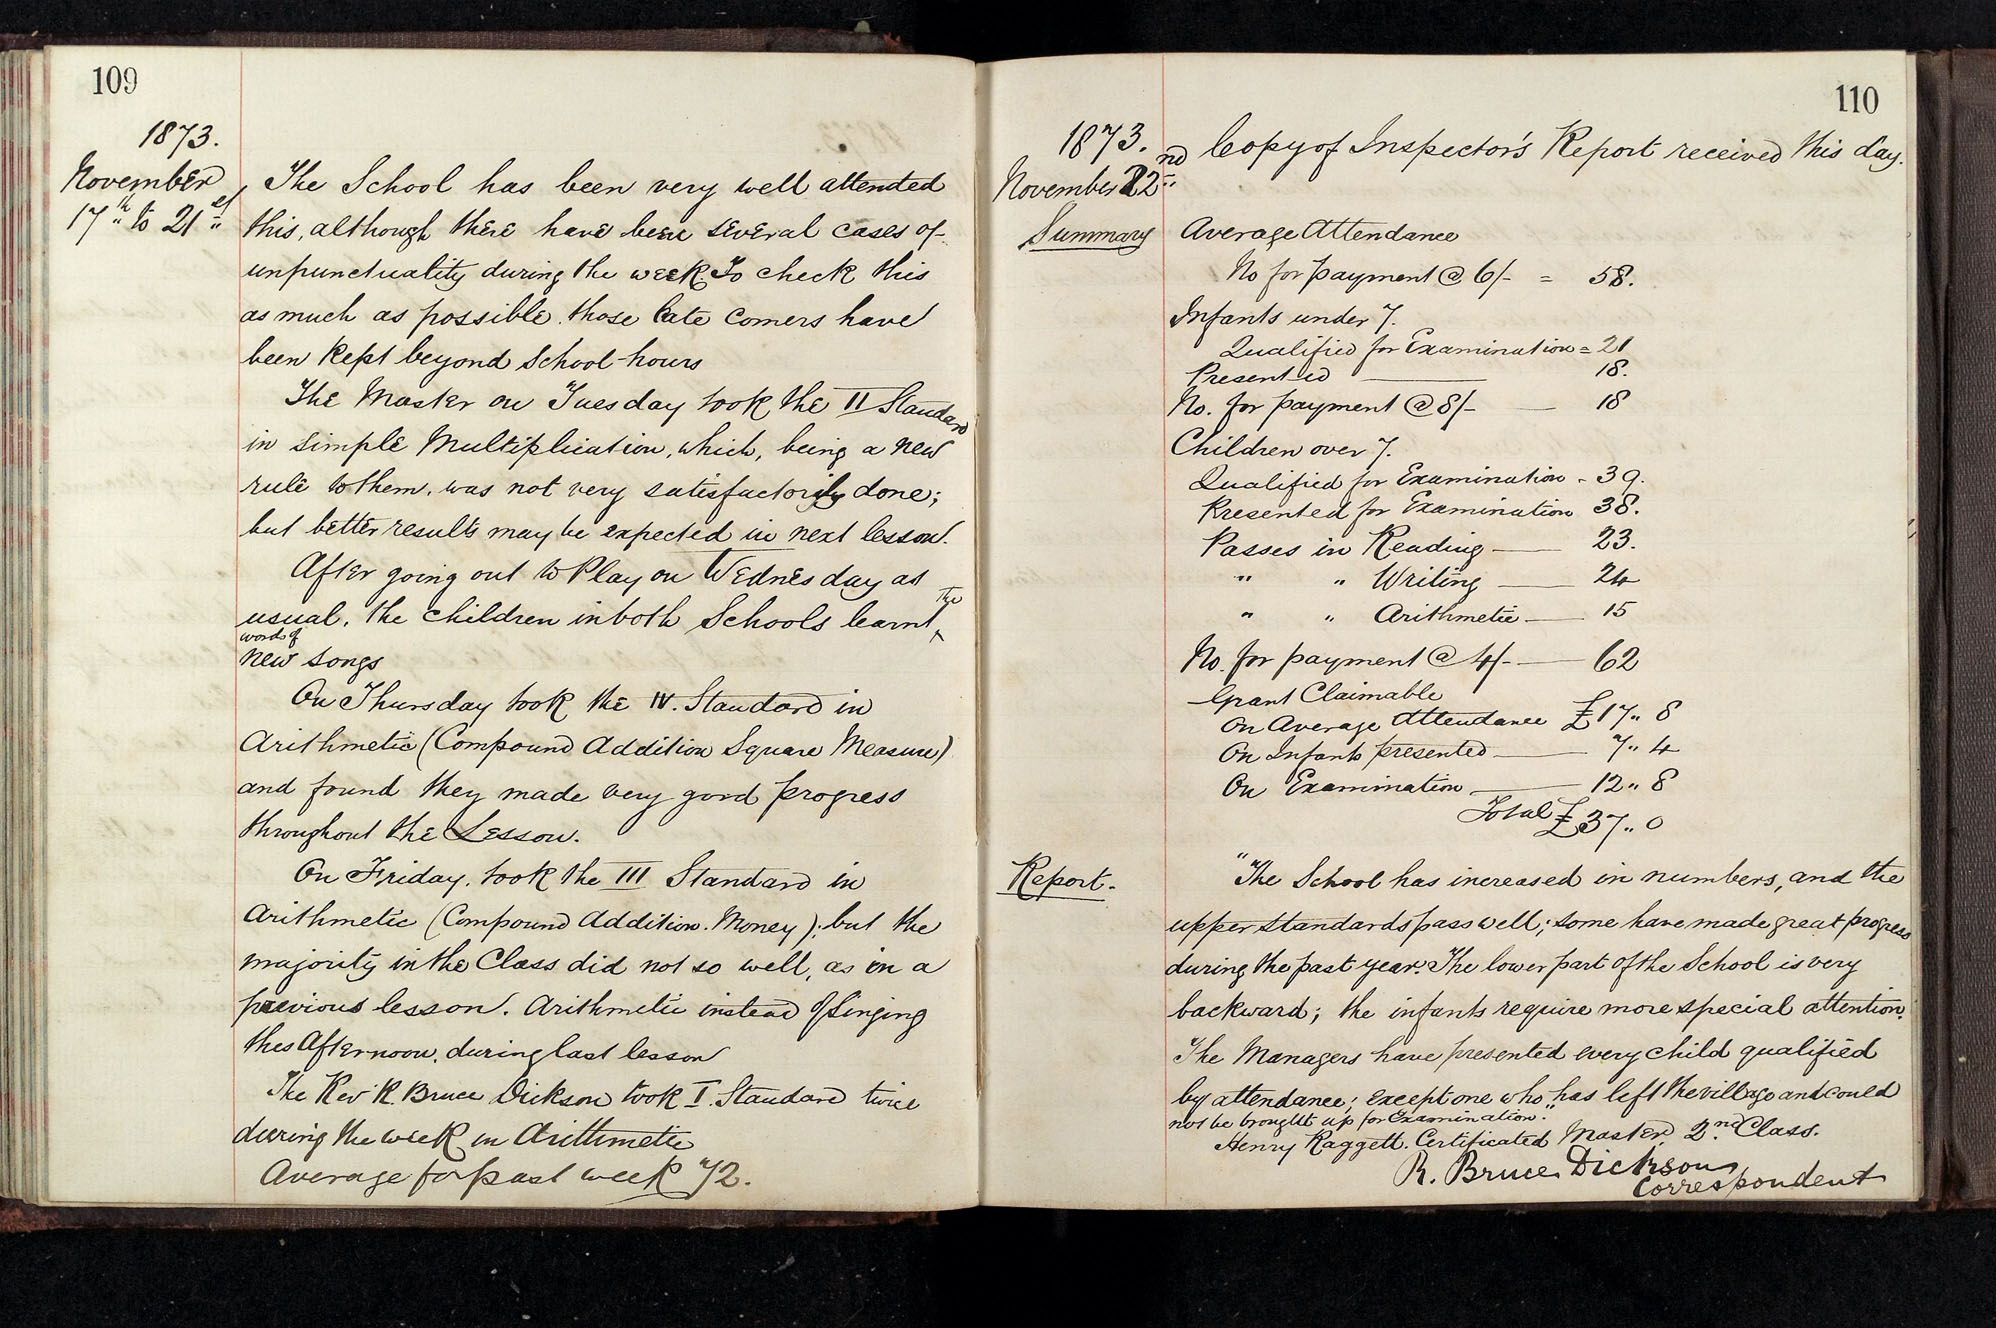 109
1873.
November
17th to 21st
The School has been very well attended
this, although there have been several cases of
unpunctuality during the week. To check this
as much as possible. those late comers have
been kept beyond School-hours
The Master on Tuesday took the II Standard
in simple Multiplication, which, being a new
rule to them. was not very satisfactorily done;
but better results may be expected in next lesson.
After going out to Play on Wednesday as
usual. the children in both Schools learnt the
words of
new songs
On Thursday took the IV. Standard in
Arithmetic (Compound Addition Square Measure)
and found they made very good progress
throughout the Lesson.
On Friday. took the III Standard in
Arithmetic (Compound Addition. Money); but the
majority in the Class did not so well, as in a
previous lesson. Arithmetic instead of Singing
this Afternoon, during last lesson
The Rev R. Bruce Dickson took I. Standard twice
during the week in Arithmetic
Average for past week 72.
110
1873.
November 22nd
Copy of Inspector's Report received this day.
Summary
Average Attendance
No for payment @ 6/- = 58.
Infants under 7.
Qualified for Examination = 21
Presented — 18.
No. for payment @ 8/- — 18
Children over 7.
Qualified for Examination - 39.
Presented for Examination 38.
Passes in Reading — 23.
" " Writing — 24
" " Arithmetic — 15
No. for payment @ 4/- — 62
Grant Claimable
On Average Attendance £17 " 8
On Infants presented — 7 " 4
On Examination — 12 " 8
Total £37 " 0
Report.
"The School has increased in numbers, and the
upper standards pass well; some have made great progress
during the past year. The lower part of the School is very
backward; the infants require more special attention.
The Managers have presented every child qualified
by attendance; except one who has left the village and could
not be brought up for Examination."
Henry Raggett. Certificated Master, 2nd Class.
R. Bruce Dickson
Correspondent